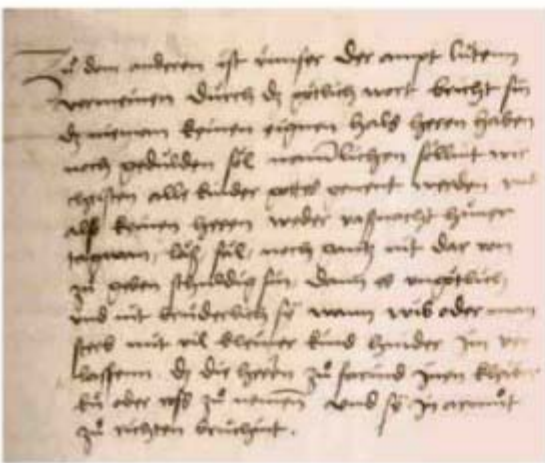 Zů dem anderen ist unnser der ampt lüten
vermeinen durch dz götlich wort bricht sin
dz nieman keinen eignen hals heren haben
noch gedulden söl namlichen söllint wir
christen alle kinder gottes genent werden und
alß keinen heren weder vassnacht hüner
tagwan, läß, fäl, noch gantz nit dar von
zů geben schuldig sin, dann es ungötlich
und nit brüderlich sy wann wib oder man
sterb mit vil kleiner kind hinder im ver
lassenn dz die heren zů farind inen kleider
ků oder ross zů nemen und sy in armůt
zů richten